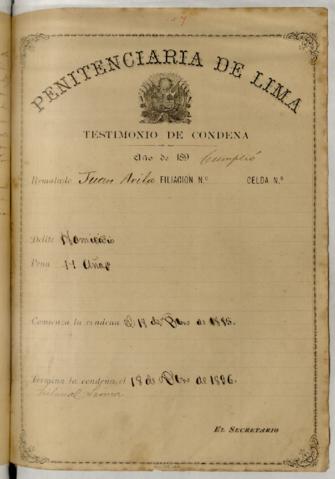 PENITENCIARIA DE LIMA
TESTIMONIO DE CONDENA
Año de 189 Cumplió
Rematado Juan Avila FILIACION N.° CELDA N.°
Delito Homicidio
Pena 11 Años
Comienza la condena el 18 de de 1885.
Termina la condena, el 18 de de 1896
EL SECRETARIO